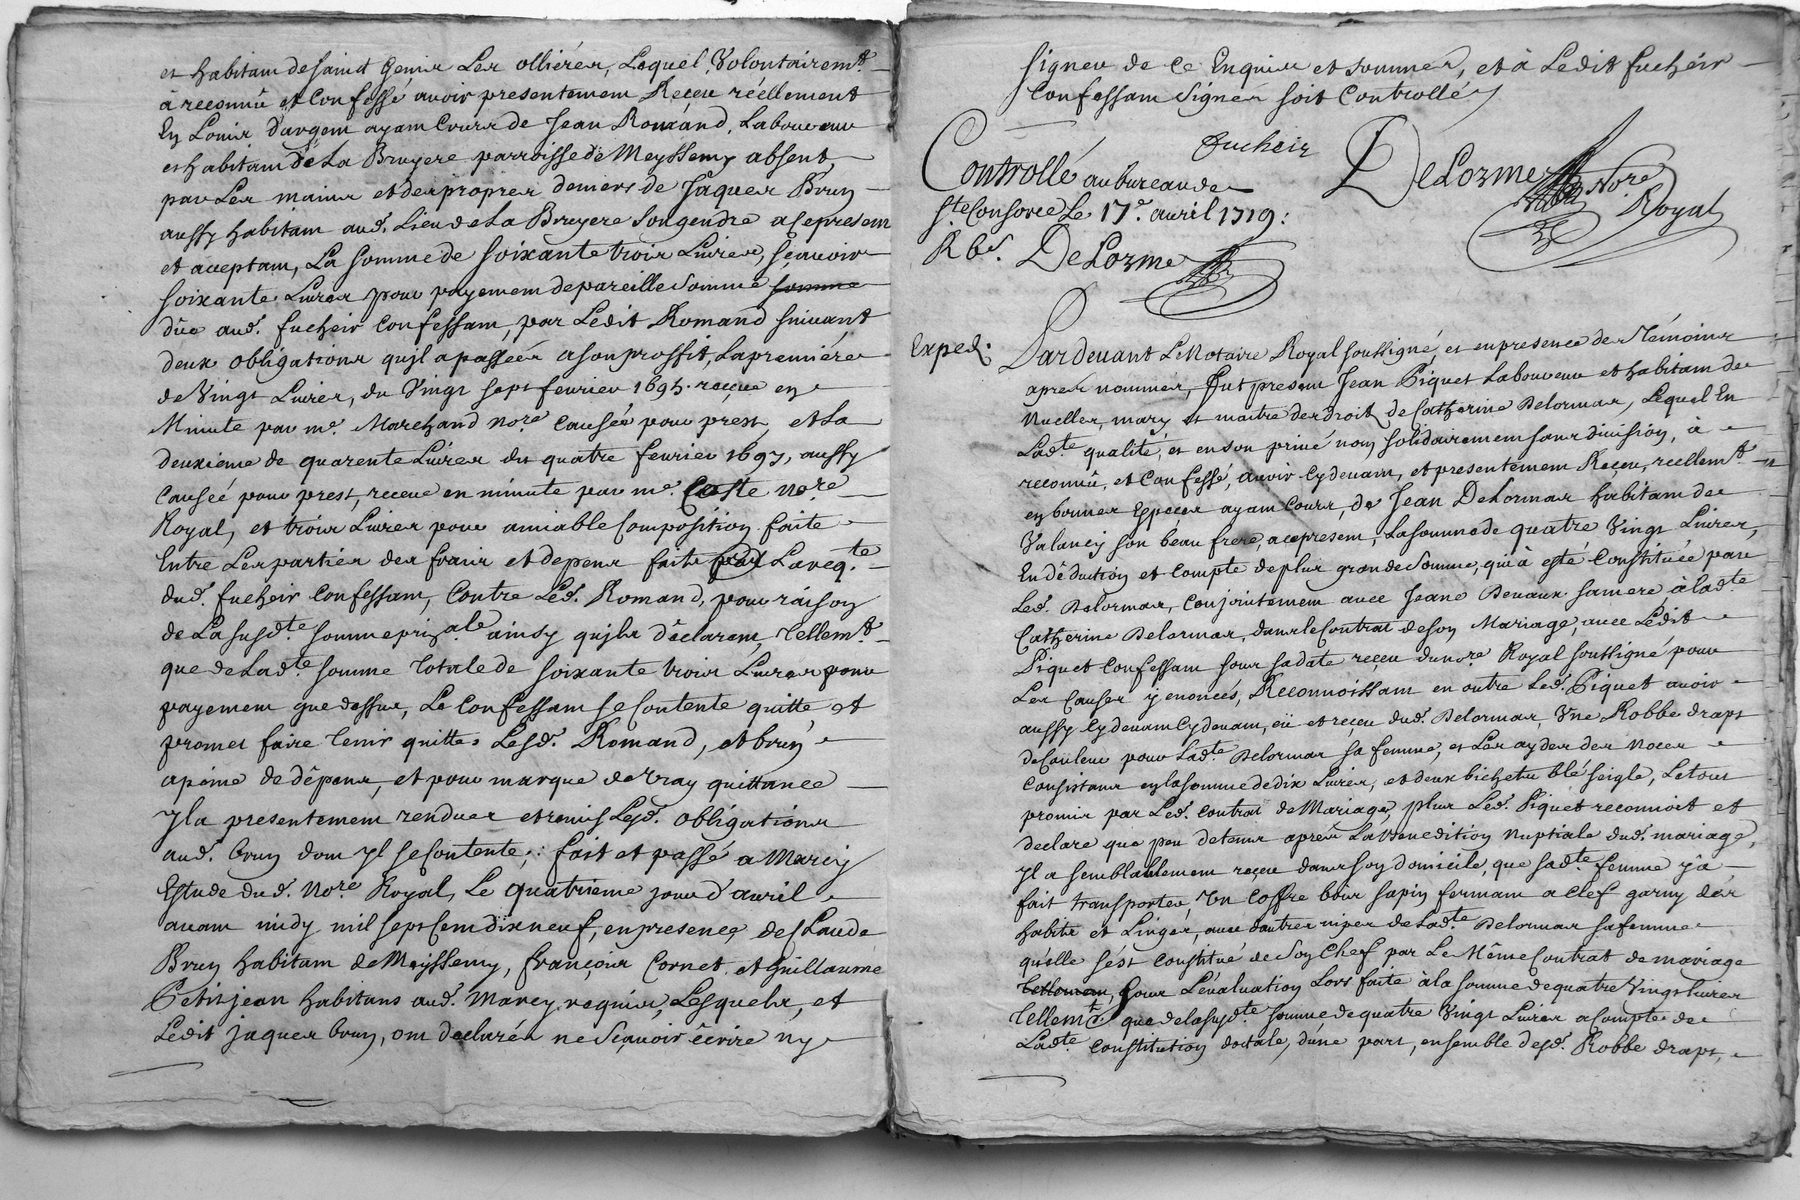 et habitant de sainct Genis Les ollières, Lequel, Volontairemt.
à reconnû et Confessé avoir presentement Receu réellement
En Louis d'argent ayant Cours de Jean Romand, Laboureur
et habitant de La Bruyere parroisse de Meyssemy absent,
par Les mains et des propres deniers de Jaques Brun
aussy habitant aud. Lieu de La Bruyere son gendre a ce present
et aceptant, La somme de soixante trois Livres, sçavoir
soixante Livres pour payement de pareille somme somme
dûe aud. fucheir Confessant, par Ledit Romand suivant
deux obligations qu'jl a passéés a son proffit, La premiére
de Vingt Livres, du Vingt sept fevrier 1695. reçeue en
Minute par me. Marchand nore. Causée pour prest, et La
deuxieme de quarente Livres du quatre fevrier 1697, aussy
Causéé pour prest, receue en minute par me. Coste nore.
Royal, et trois Livres pour amiable Composition faite
Entre Les parties des frais et depens faits par La req.te
dud. fucheir Confessant, Contre Led. Romand, pour raison
de La susd.te somme prin.ale ainsy qu'jls déclarent, Tellemt.
que de Lad.te somme Totale de soixante trois Livres pour
payement que dessus, Le Confessant se Contente quitte et
promet faire Tenir quittes Lesd. Romand, et brun
apéine de dépens, et pour marque de Vray quittance
Jl a presentement rendues et remis Lesd. obligations
aud. brun dont Jl se Contente; fait et passé a Marcy
Estude dud. Nore. Royal, Le quatrieme jour d'avril
avant midy mil sept Cent dix neuf, en presence de Claude
Brun habitant de Meyssemy, françois Cornet et Guillaume
Petitjean habitans aud. Marcy requis, Lesquels, et
Ledit Jaques brun, ont declarés ne Sçavoir écrire ny
signer de Ce Enquis et sommés, et à Ledit fucheir
Confessant Signés soit Controllé
fucheir DeLorme Nore. Royal
Controllé au bureau de
Ste. Consorce Le 17e. avril 1719:
R 6s. DeLorme
Exped.
Pardevant Le Notaire Royal soussigné, et en presence des Témoins
aprés nommés, fut present Jean Piquet Laboureur et habitant de
Nuelles, mary et maitre des droits de Catherine Delormas, Lequel En
Lad.te qualité, et en son privé nom, solidairement sans division, à
reconnû, et Confessé, avoir Cy devant, et presentement Receu, reellemt.
en bonnes Especes ayant Cours, de Jean DeLormas habitant de
Valancy son beau frere, acepresent, La somme de quatre Vingt Livres,
En dêduction et Compte de plus grande Somme, qui à esté Constituée par
Led. Delormas, Conjointement avec Jeane Devaux sa mere, à lad.te
Catherine Delormas, dans le Contrat de son Mariage, avec Lédit
Piquet Confessant sous sa date reçeu du nore. Royal soussigné pour
Les Causes y enoncés, Reconnoissant en outre Led. Piquet avoir
aussy Cy devant Cy devant, eû et reçeu dud. Delormas, Vne Robbe draps
de Couleur pour Lad.te Delormas sa femme, et Les aydes des noces
Consistans en la somme de dix Livres, et deux bichets blé seigle, Le tout
promis par Led. Contrat de Mariage, plus Led. Piquet reconnoit et
declare que peu de tems aprés La benediction nuptiale dud. mariage,
Jl a semblablement reçeu dans son domicile, que sad.te femme y à
fait transporter, Vn Coffre bois sapin fermant a Clef garny des
habits et Linges, avec d'autres nipes de Lad.te Delormas sa femme
qu'elle s'est Constitué de Son Chef par Le Même Contrat de mariage
Tellement, Pour L'évaluation Lors faite à la somme de quatre Vingt Livres
Tellemt. que de la susd.te somme de quatre Vingt Livres a Compte de
Lad.te Constitution dotale, d'une part, ensemble desd. Robbe draps,